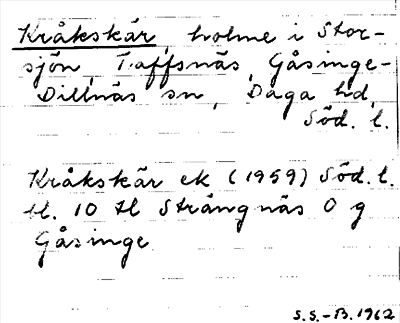 Kråkskär, holme i Stor-
sjön, Taffsnäs, Gåsinge-
Dillnäs sn, Daga hd,
Söd. l.
Kråkskär ek (1959) Söd. l.
bl. 10 tl Strängnäs O g
Gåsinge
S.S.-B. 1962